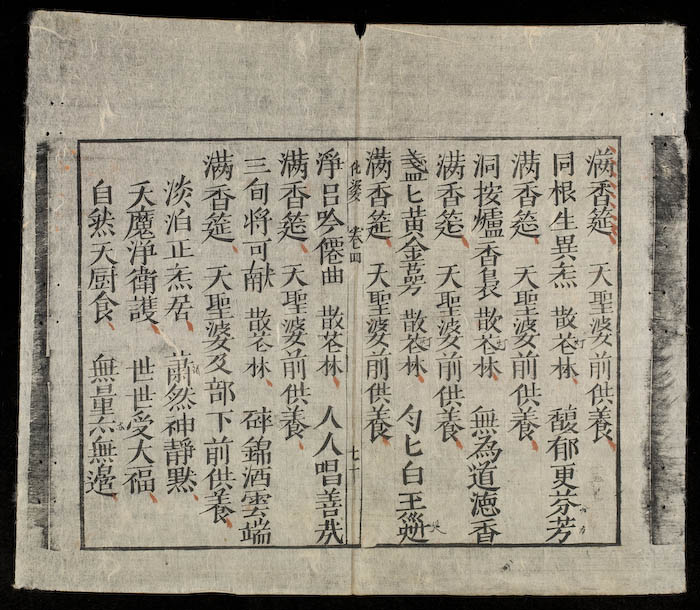 满香筵 天聖婆前供養
同根生異炁 散花林 馥郁更芬芳
满香筵 天聖婆前供養
洞按爐香裊 散花林 無為道德香
满香筵 天聖婆前供養
盞匕黄金蕚 散花林 勺匕白玉
满香筵 天聖婆前供養
化婆 卷四 七十
淨吕吟僊曲 散花林 人人唱善哉
满香筵 天聖婆前供養
三旬将可献 散花林 碎錦洒雲端
满香筵 天聖婆及部下前供養
淡泊正炁居 蕭然神靜默
天魔淨衛護 世世受大福
自然天厨食 無量亦無邊